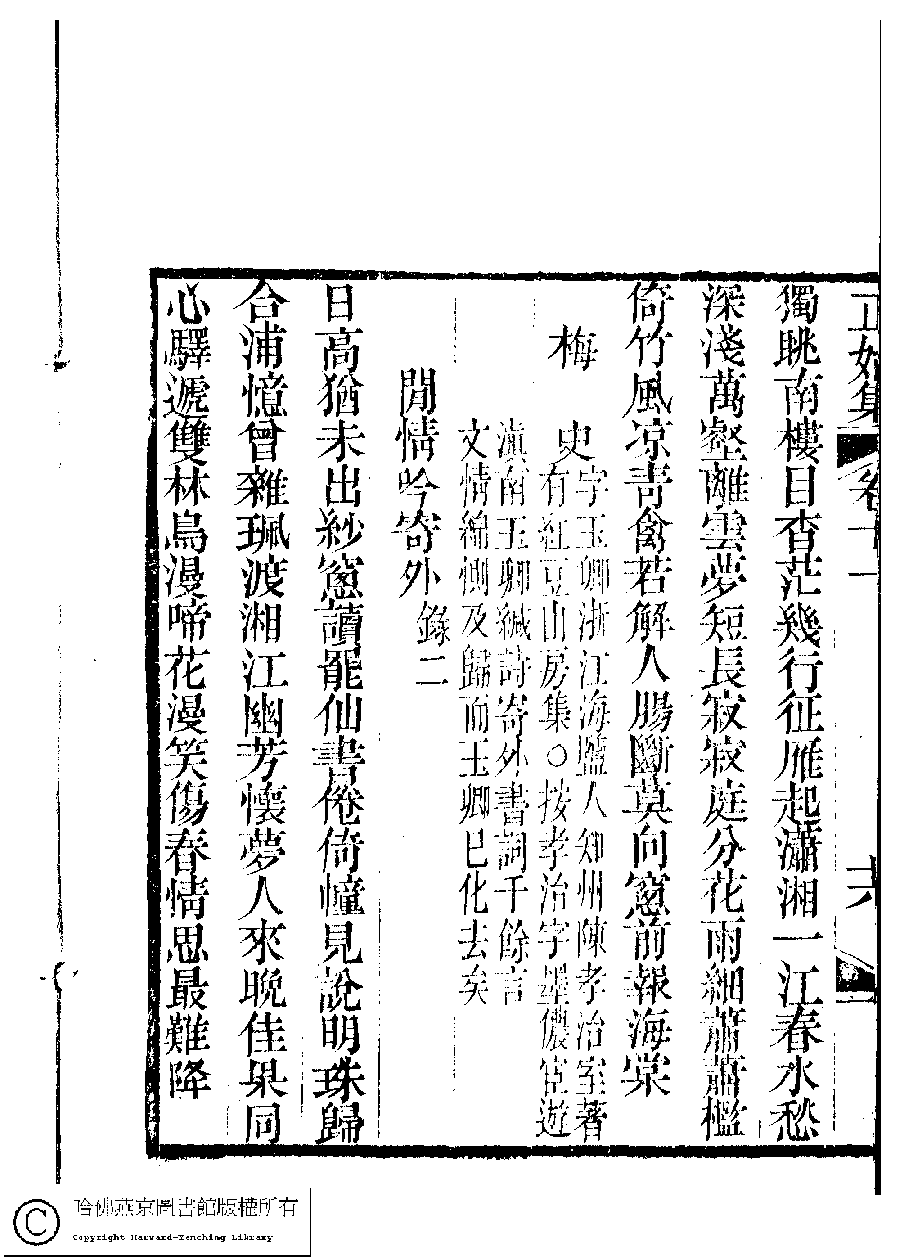 正始集 卷十一 六
獨眺南樓日杳茫幾行征雁起瀟湘一江春水愁
深淺萬壑離雲夢短長寂寂庭分花雨細蕭蕭檻
倚竹風凉靑禽若解人腸斷莫向窻前報海棠
梅史字玉卿浙江海鹽人知州陳孝治室著
有紅豆山房集○按孝治字墨儂宦遊
滇南玉卿緘詩寄外書詞千餘言
文情綿惻及歸而玉卿已化去矣
閒情吟寄外錄二
日高猶未出紗窻讀罷仙書倦倚幢見說明珠歸
合浦憶曾雜珮渡湘江幽芳懷夢人來晩佳果同
心驛遞雙林鳥漫啼花漫笑傷春情思最難降
哈佛燕京圖書館版權所有
Copyright Harvard-Yenching Library